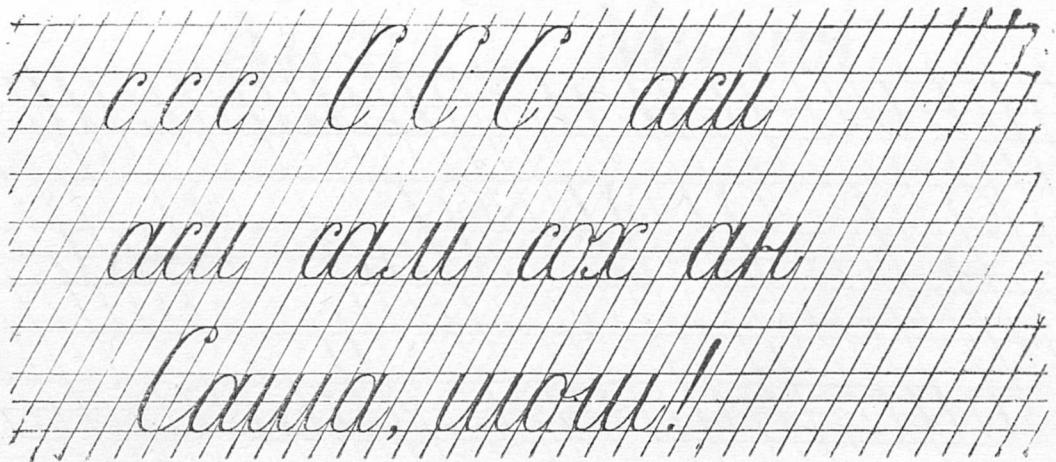 с с с С С С аси
аси сам сох ан
Саша, шош!